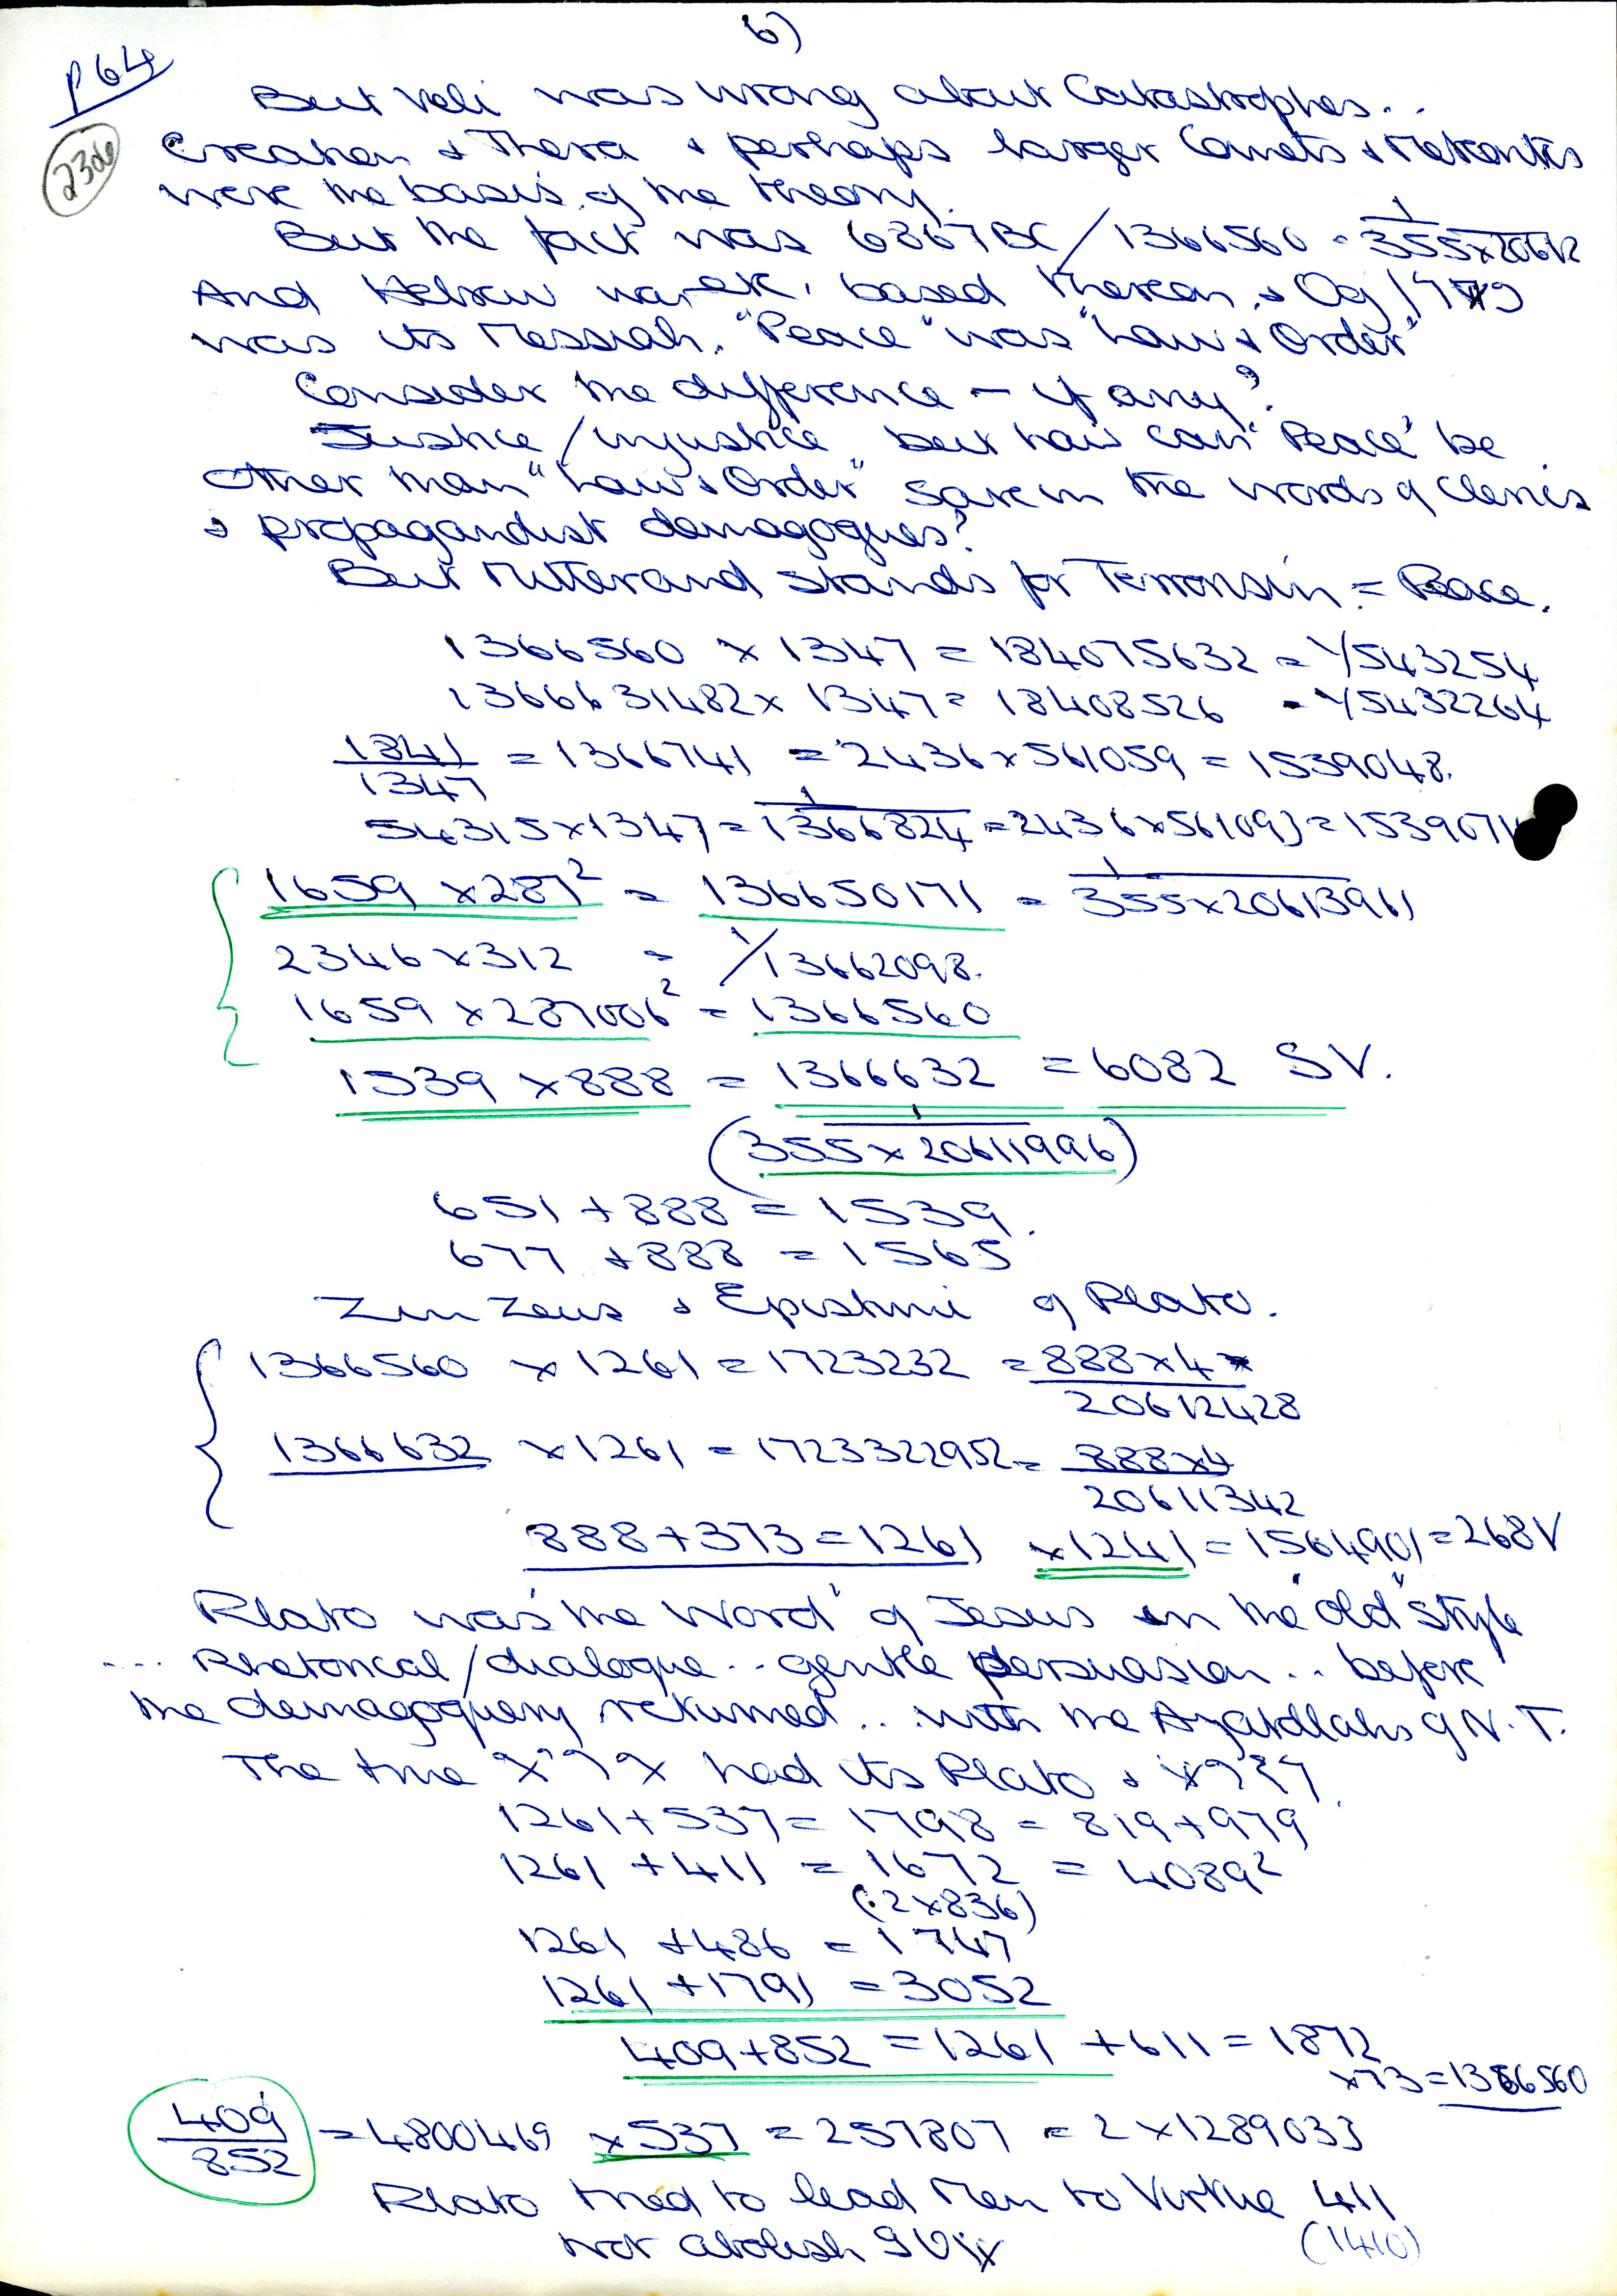 6)
p 64
2306
But Veli was wrong about Catastrophes..
Creation & Thera & perhaps larger Comets & Meteorites
were the basis of the theory.
But the fact was 6367 BC / 1366560 = 1/355x20612
And Hebrew was etc. based thereon & Og 1479
was its Messiah. "Peace" was "Law & Order"
Consider the difference — if any?
Justice / injustice but how can "Peace" be
other than "Law & Order" save in the words of clerics
& propagandist demagogues?
But Mitterand stands for Terrorism = Peace.
1366560 x 1347 = 184075632 = 1/543254
1366631482 x 1347 = 18408526 = 1/5432264
1841/1347 = 1366741 = 2436 x 561059 = 1539048.
54315 x 1347 = 1/1366824 = 2436 x 561093 = 1539071
1659 x 287² = 136650171 = 1/355x20613961
2346 x 312 = 1/13662098.
1659 x 287006² = 1366560
1539 x 888 = 1366632 = 6082 SV.
(1/355x20611996)
651 + 888 = 1539.
677 + 888 = 1565
Zun Zeus & Epistimi of Plato.
1366560 x 1261 = 1723232 = 888x4/20612428
1366632 x 1261 = 1723322952 = 888x4/20611342
888 + 373 = 1261 x 1241 = 1564901 = 268V
Plato was "the Word" of Jesus in the "old" style
... Rhetorical / dialogue .. gentle persuasion .. before
the demagoguery returned .. with the Ayatollahs of N.T.
The true had its Plato &
1261 + 537 = 1798 = 819 + 979
1261 + 411 = 1672 = 4089²
(2x836)
1261 + 486 = 1747
1261 + 1791 = 3052
409 + 852 = 1261 + 611 = 1872
x73 = 1366560
409/852 = 4800469 x 537 = 257807 = 2 x 1289033
Plato tried to lead Men to Virtue 411
not abolish (1410)